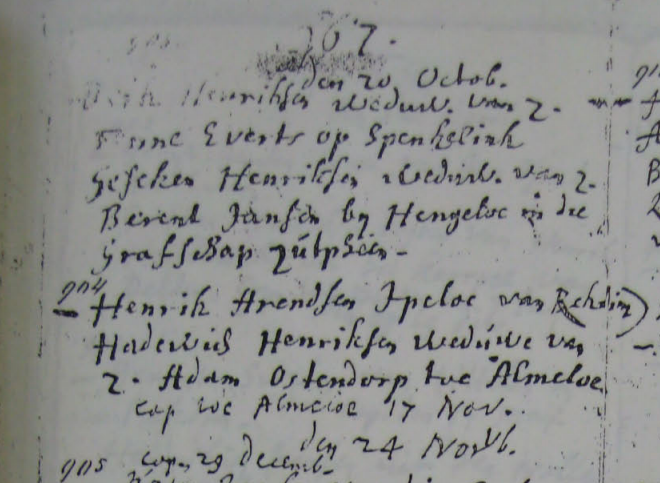 903
167.
den 20 Octob.
Henriksen weduw. van z.
Enne Everts op Spenkelink
Gesken Henriksen weduw. van z.
Berent Jansen by Hengeloe in die
Grafschap Zútphen -
904 Henrik Arendsen Ipeloe van
Hadewich Henriksen wedúwe van
z. Adam Ostendorp toe Almeloe
cop toe Almeloe 17 Nov.
den 24 Novb.
905 cop. 29 Decemb.